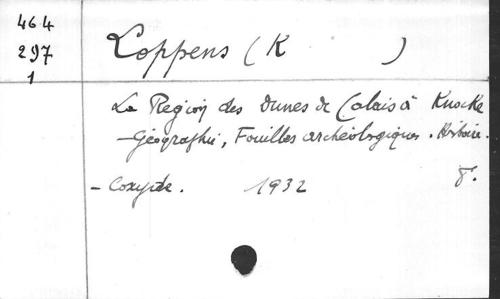 464
297
1
Loppens (K )
La Region des Dunes de Calais à Knocke
- Géographie, Fouilles archéologiques. Histoire.
- Coxyde. 1932 8°.